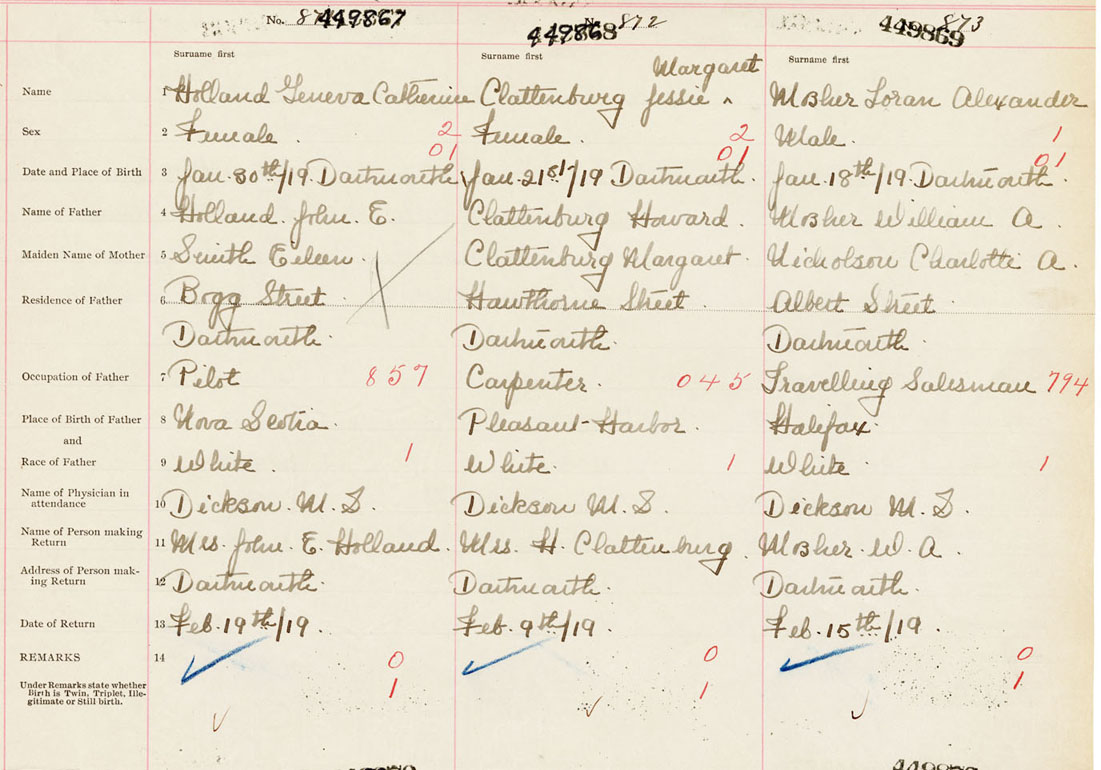 No. 87 449867 No. 872 449868 873 449869
Surname first Surname first Surname first
Margaret
Name 1 Holland Geneva Catherine Clattenburg Jessie ^ Mosher Loran Alexander
Sex 2 Female. 2 Female. 2 Male. 1
01 01 01
Date and Place of Birth 3 Jan. 30th/19 Dartmouth Jan. 21st/19 Dartmouth. Jan. 18th/19 Dartmouth.
Name of Father 4 Holland. John. E. Clattenburg Howard. Mosher William A.
Maiden Name of Mother 5 Smith Eileen. Clattenburg Margaret. Nicholson Charlotte A.
Residence of Father 6 Bogg Street. Hawthorne Street. Albert Street
Dartmouth. Dartmouth. Dartmouth.
Occupation of Father 7 Pilot 857 Carpenter. 045 Travelling Salesman 794
Place of Birth of Father 8 Nova Scotia. Pleasant Harbor. Halifax.
and
Race of Father 9 White. 1 White. 1 White. 1
Name of Physician in
attendance 10 Dickson. M. S. Dickson M. S. Dickson M. S.
Name of Person making
Return 11 Mrs. John. E. Holland. Mrs. H. Clattenburg. Mosher. W. A.
Address of Person mak-
ing Return 12 Dartmouth. Dartmouth. Dartmouth.
Date of Return 13 Feb. 19th/19. Feb. 9th/19. Feb. 15th/19.
REMARKS 14 0 0 0
Under Remarks state whether
Birth is Twin, Triplet, Ille-
gitimate or Still birth. 1 1 1